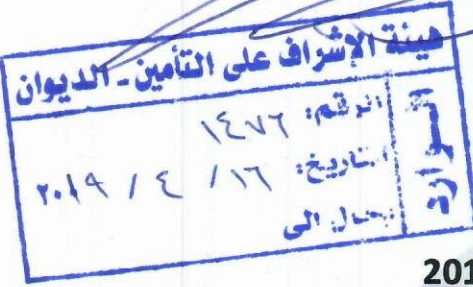 هيئة الإشراف على التأمين - الديوان
الرقم: ١٤٧٦
التاريخ: ١٦ / ٤ / ٢٠١٩
يحال الى
201